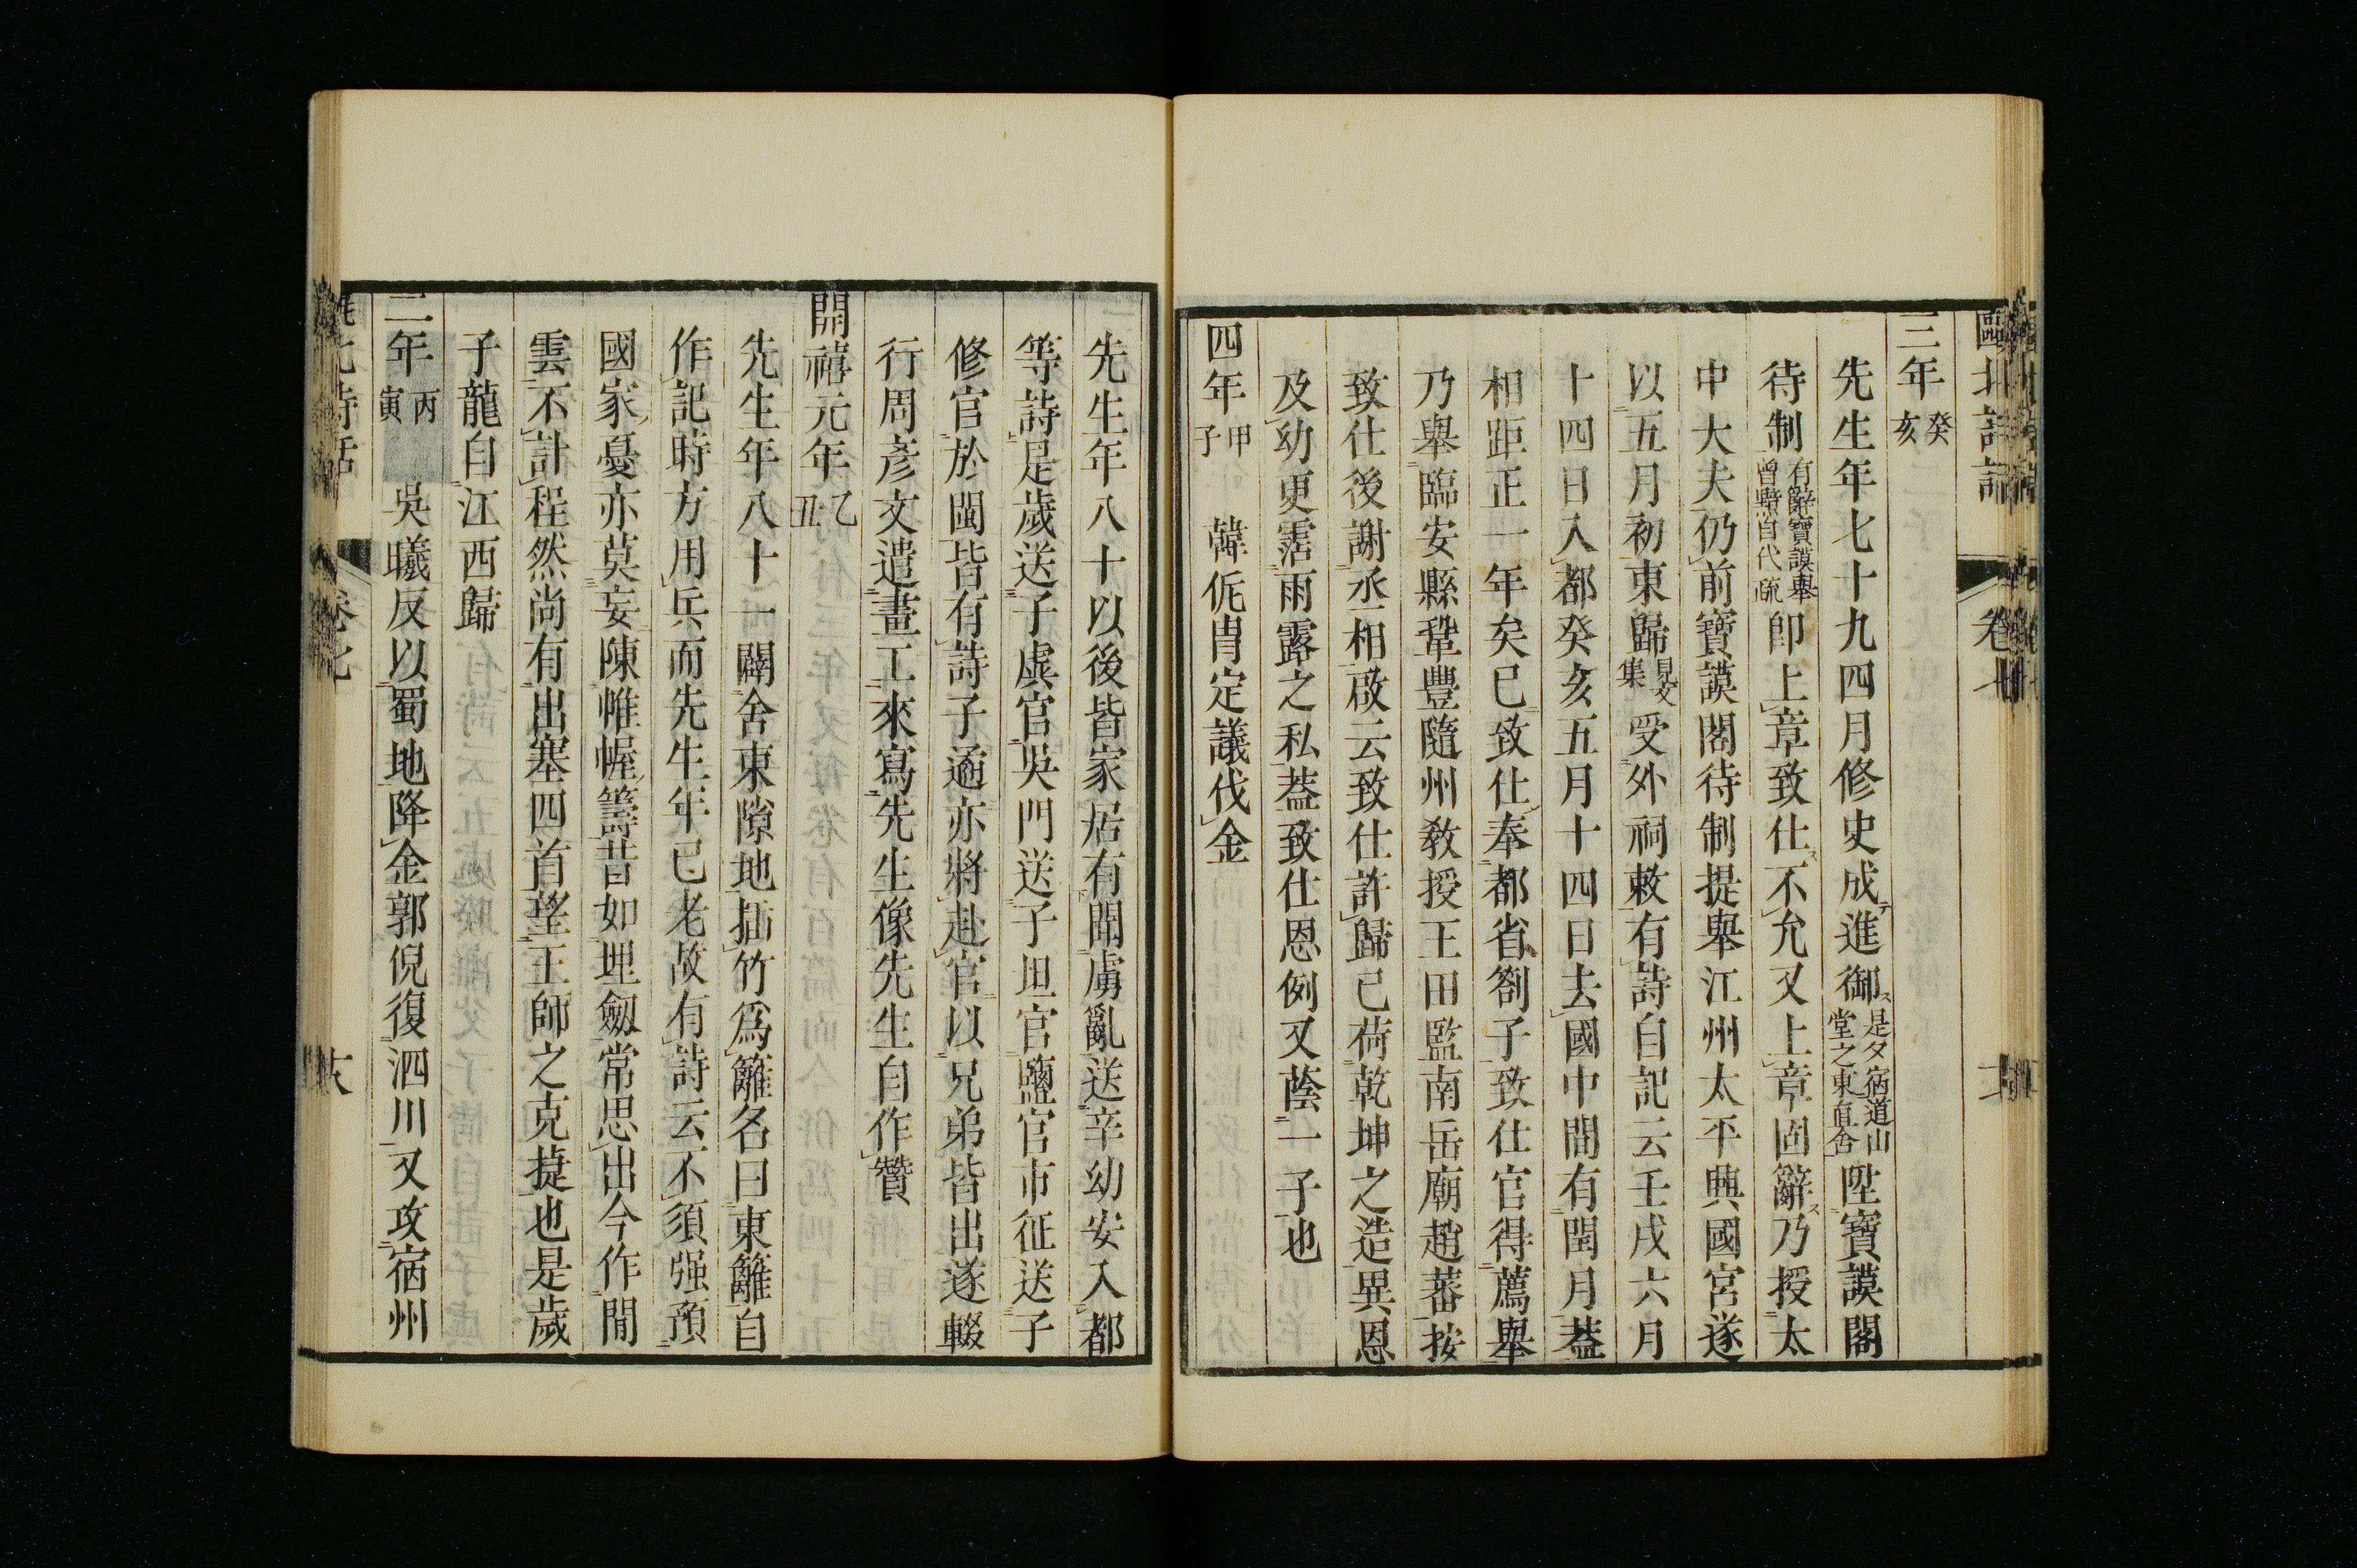 三年癸亥
先生年七十九四月修史成進御是夕宿道山堂之東直舍陞寶謨閣
待制有辭寶謨舉曾黯自代疏卽上章致仕不允又上章固辭乃授太
中大夫仍前寶謨閣待制提舉江州太平興國宮遂
以五月初東歸見文集受外祠敕有詩自記云壬戌六月
十四日入都癸亥五月十四日去國中間有閏月葢
相距正一年矣已致仕奉都省劄子致仕官得薦舉
乃舉臨安縣鞏豐隨州敎授王田監南岳廟趙蕃按
致仕後謝丞相啟云致仕許歸已荷乾坤之造異恩
及幼更霑雨露之私葢致仕恩例又蔭一子也
四年甲子 韓侂冑定議伐金
先生年八十以後皆家居有聞虜亂送辛幼安入都
等詩是歲送子虡官吳門送子坦官鹽官市征送子
修官於閩皆有詩子遹亦將赴官以兄弟皆出遂輟
行周彥文遣畫工來寫先生像先生自作贊
開禧元年乙丑
先生年八十一闢舍東隙地插竹爲籬名曰東籬自
作記時方用兵而先生年已老故有詩云不須强預
國家憂亦莫妄陳帷幄籌昔如埋劒常思出今作閒
雲不計程然尚有出塞四首望王師之克捷也是歲
子龍自江西歸
二年丙寅 吳曦反以蜀地降金郭倪復泗川又攻宿州
卷七